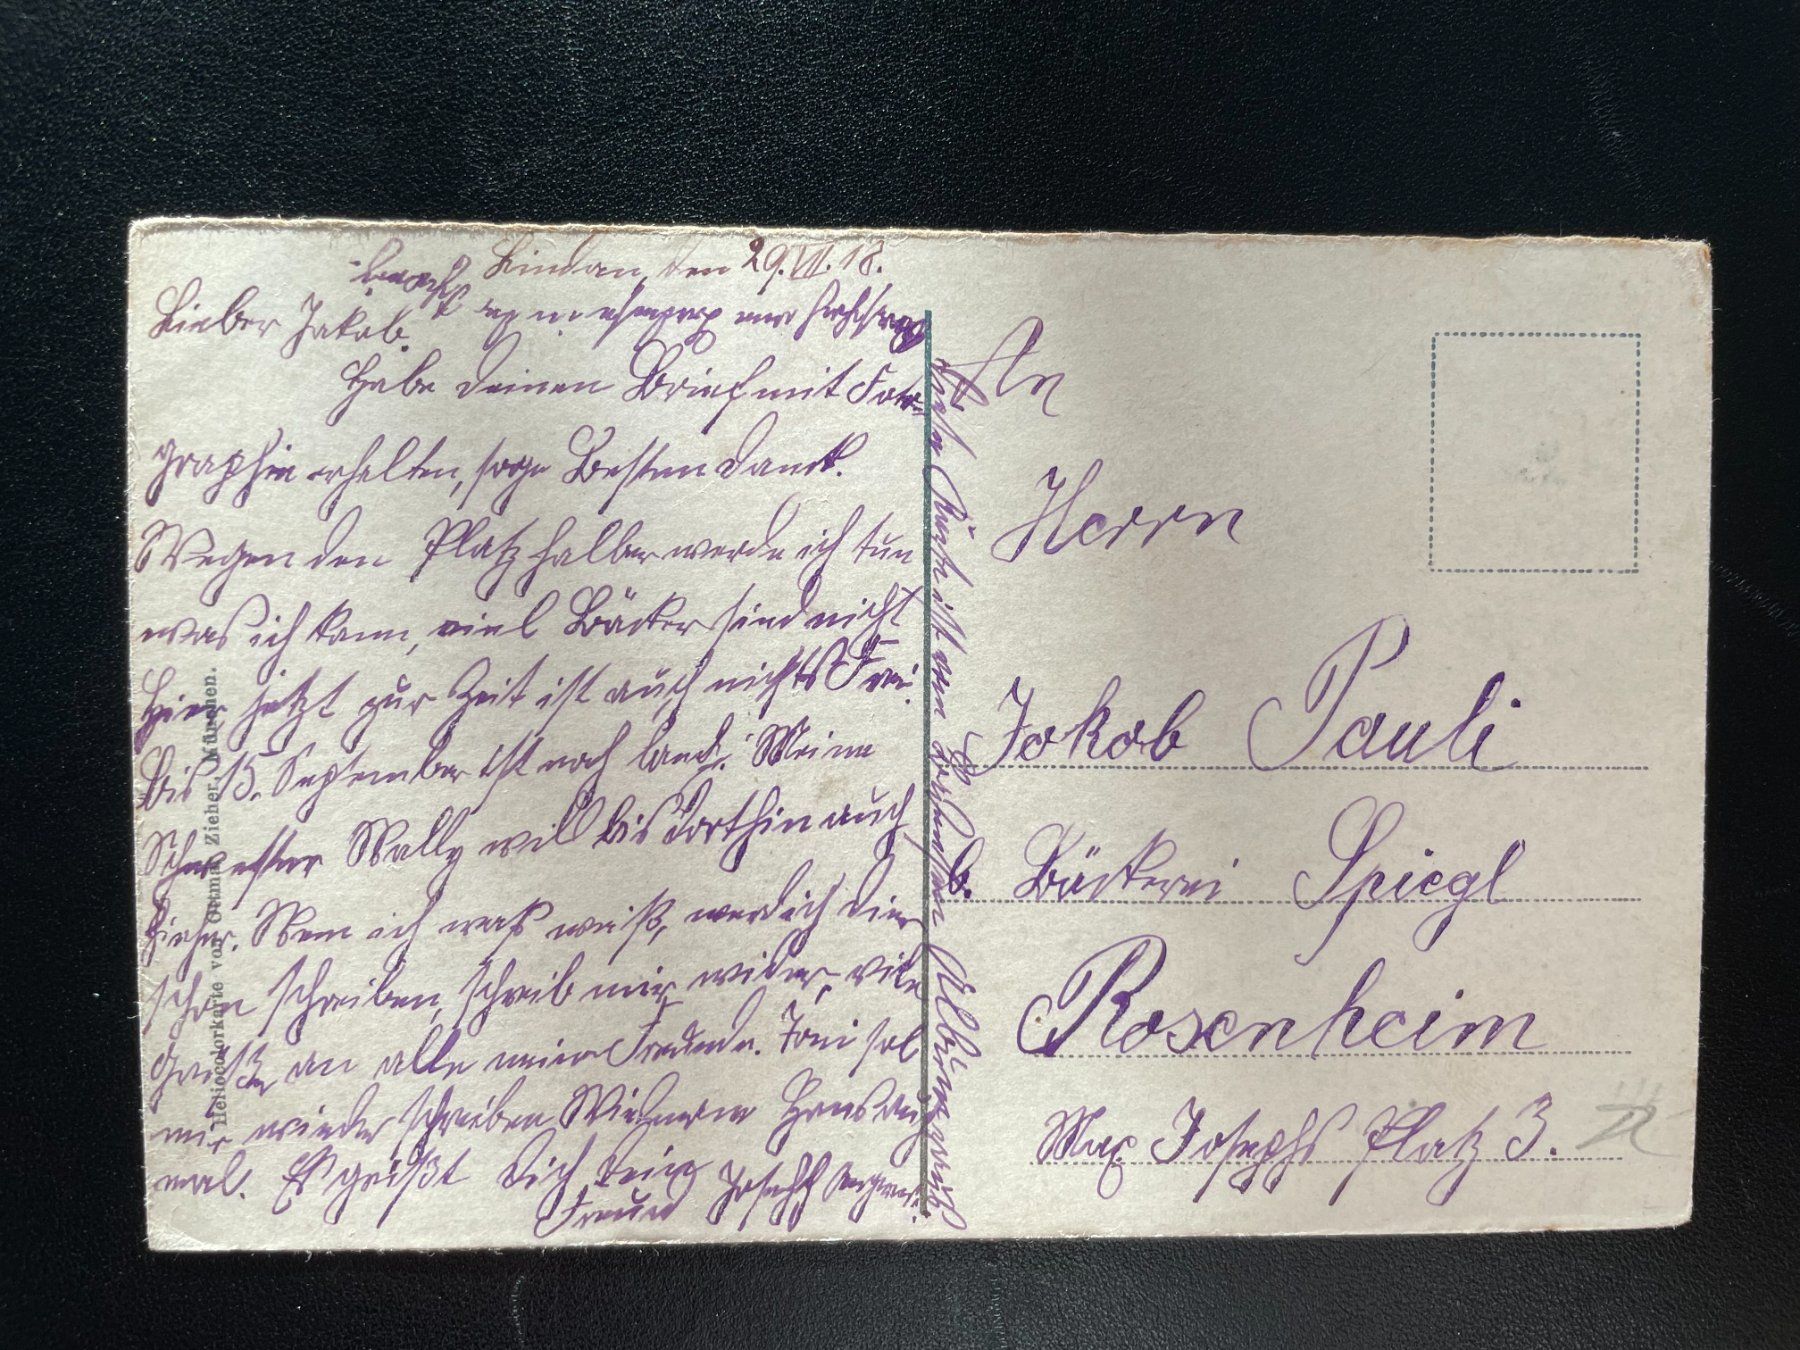 Lindau, den 29.VII.18.
Lieber Jakob.
Habe deinen Brief mit Foto-
graphie erhalten, sage Besten Dank.
Wegen den Platz halber werde ich tun
was ich kann, viel Bäcker sind nicht
Hier, jetzt zur Zeit ist auch nichts Frei.
Bis 15. September ist noch lang. Meine
Schwester Wally will bis dorthin auch
hieher. Wen ich waß weiß, werd ich dir
schon schreiben, schreib mir wider, viele
Grüße an alle meine Freunde. Toni sol
mir wieder schreiben
mal. Es grüßt Dich dein
Freund Joseph
An
Herrn
Jakob Pauli
b. Bäckerei Spiegl
Rosenheim
Max Josephs Platz 3.
Heliocolorkarte von Ottmar Zieher, München.